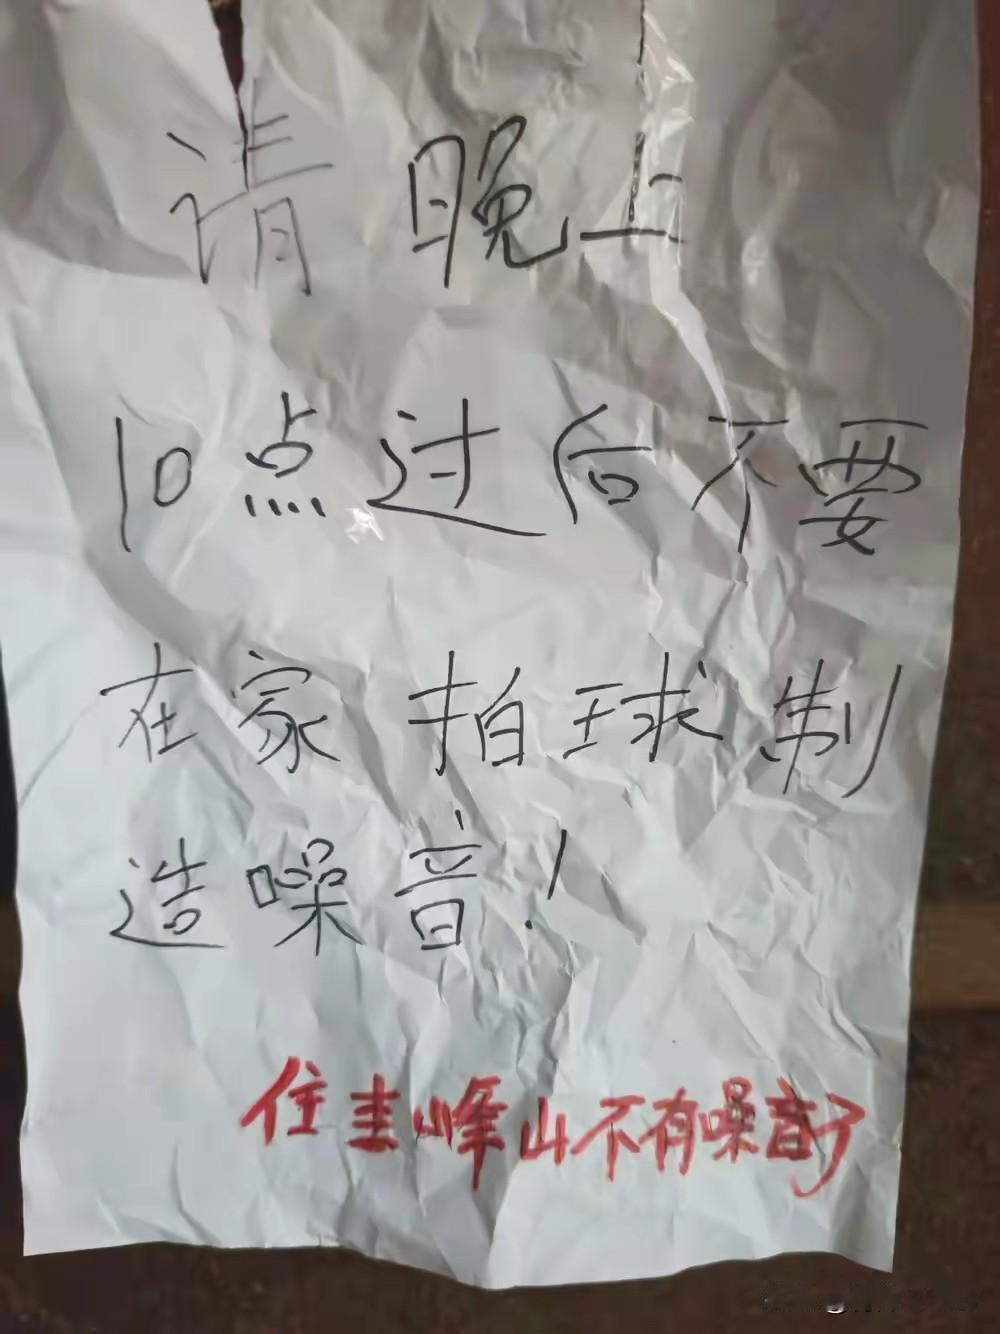 请晚上
10点过后不要
在家拍球制
造噪音!
住圭峰山不有噪音了